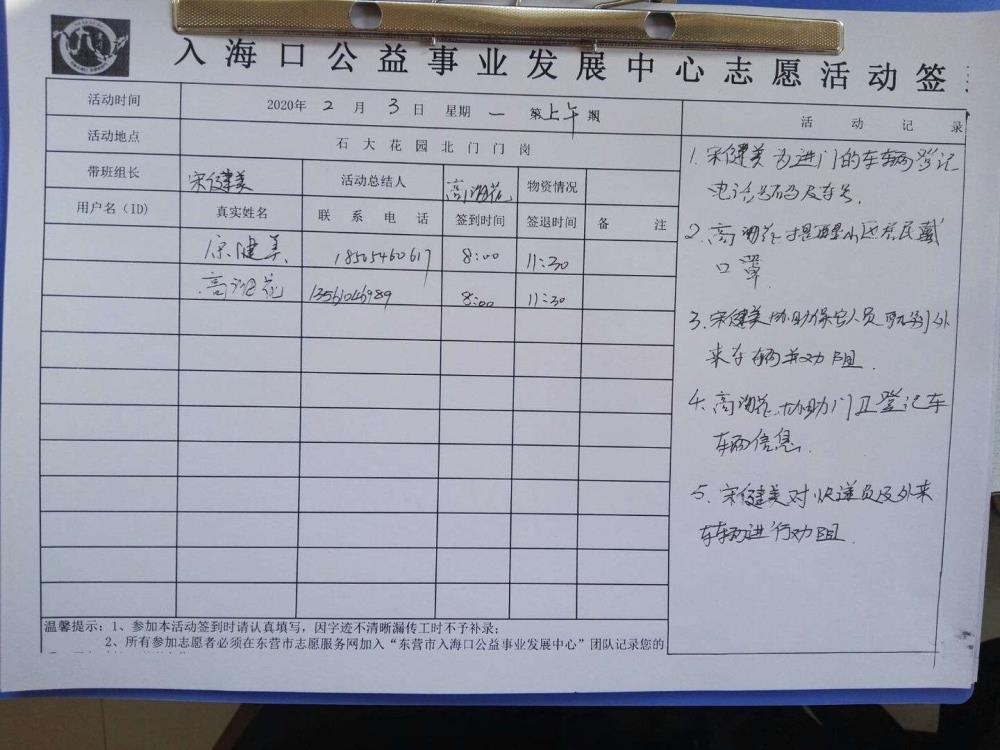 入海口公益事业发展中心志愿活动签
活动时间 2020年 2 月 3 日 星期 一 第上午期
活动地点 石大花园北门门岗
带班组长 宋健美 活动总结人 物资情况
用户名（ID） 真实姓名 联系电话 签到时间 签退时间 备注
宋健美 18505460617 8:00 11:30
8:00 11:30
活动记录
1. 宋健美为进门的车辆登记
电话号码及车号.
2. 高 提醒小区居民戴
口罩.
3. 宋健美协助保安人员 外
来车辆并劝阻.
4. 高 协助门卫登记车
车辆信息.
5. 宋健美对快递员及外来
车辆进行劝阻.
温馨提示：1、参加本活动签到时请认真填写，因字迹不清晰漏传工时不予补录；
2、所有参加志愿者必须在东营市志愿服务网加入“东营市入海口公益事业发展中心”团队记录您的